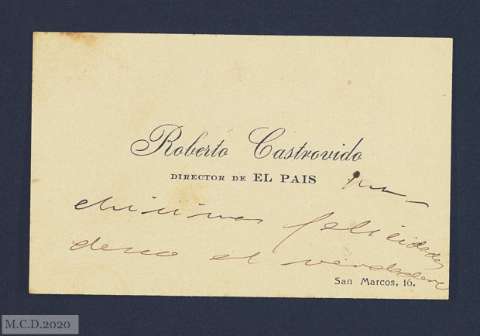 Roberto Castrovido
DIRECTOR DE EL PAIS
felicidades
desea al verdadero
San Marcos, 16.
M.C.D.2020